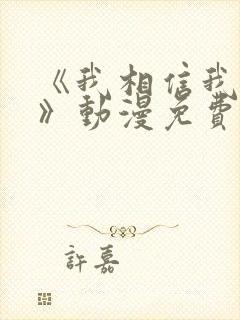 《我相信我
》動漫免費
許嘉